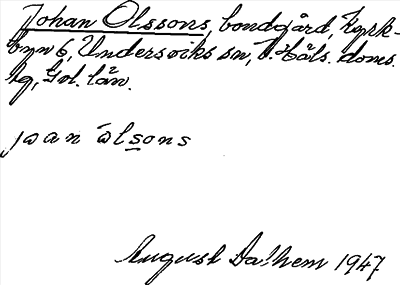 Johan Olssons, bondgård, Kyrk-
byn 6, Undersviks sn, V. Häls. doms.
lg, Gvl. län.
joan ólsons
August Dalhem 1947